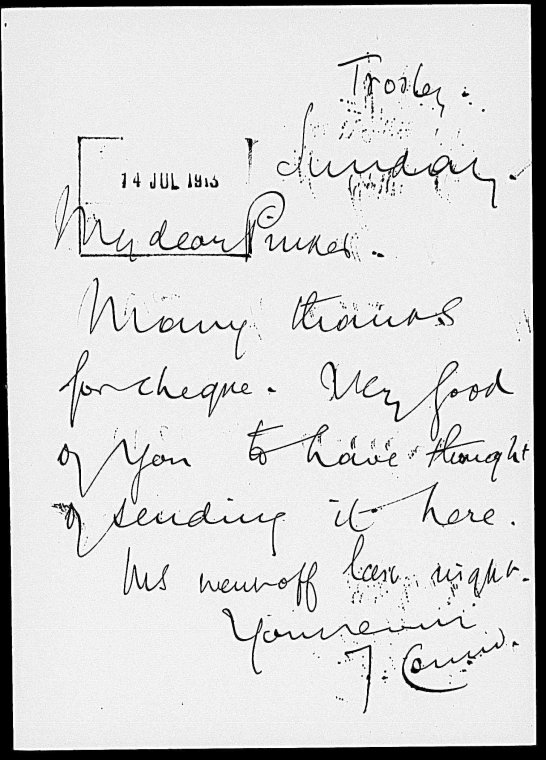 Trosley.
Sunday.
14 JUL 1913
My dear Pinker.
Many thanks
for cheque. Very good
of You to have thought
of sending it here.
MS went off last night.
Yours ever
J. Conrad.